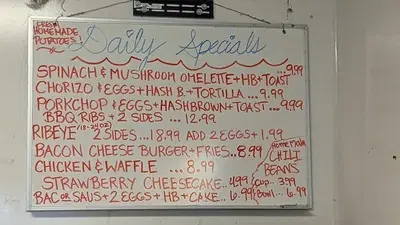 FRESH
HOMEMADE
POTATOES
Daily Specials
SPINACH & MUSHROOM OMELETTE + HB + TOAST ...9.99
CHORIZO + EGGS + HASH B. + TORTILLA ... 9.99
PORKCHOP + EGGS + HASHBROWN + TOAST ... 9.99
BBQ RIBS + 2 SIDES ... 12.99
RIBEYE 2 SIDES... 18.99 ADD 2 EGGS + 1.99
BACON CHEESE BURGER + FRIES... 8.99
CHICKEN & WAFFLE ... 8.99
STRAWBERRY CHEESECAKE... 4.99
BAC OR SAUS + 2 EGGS + HB + CAKE... 6.99
HOMEMADE
CHILI
BEANS
CUP... 3.99
Bowl... 6.99